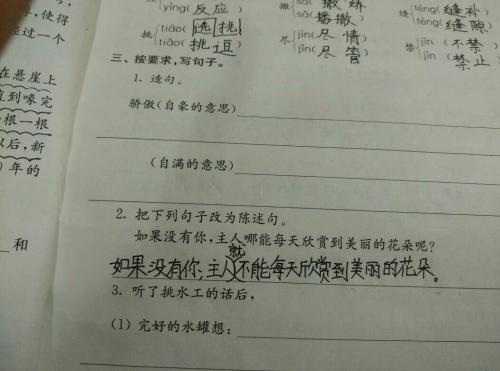 yīng(反应)
撒 sā(撒娇)
sǎ(播撒)
缝 féng(缝补)
fèng(缝隙)
挑 tiāo(选挑)
tiǎo(挑逗)
尽 jìn(尽情)
jǐn(尽管)
禁 jīn(不禁)
jìn(禁止)
,使得
经过一个
在悬崖上
直到喙完
根一根
以后,新
)年的
和
三、按要求,写句子。
1. 造句。
骄傲(自豪的意思)
(自满的意思)
2. 把下列句子改为陈述句。
如果没有你,主人哪能每天欣赏到美丽的花朵呢?
如果没有你,主人就不能每天欣赏到美丽的花朵。
3. 听了挑水工的话后,
(1) 完好的水罐想: